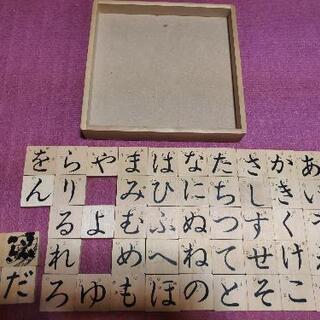 あいうえお
かきくけこ
さしすせそ
たちつてと
なにぬねの
はひふへほ
まみむめも
やよゆ
らりるれろ
をん
だ